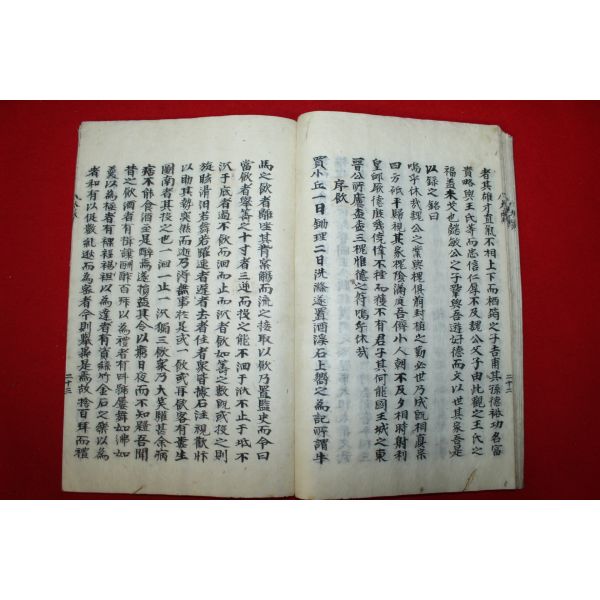 者其雄才直氣不相上下而栖筠之子吉甫其孫德裕功名富
貴略與王氏等而忠信仁厚不及魏公父子由此觀之王氏之
福盖未艾也懿敏公之子鞏與吾遊好德而文以世其家吾是
以錄之銘曰
嗚乎休哉魏公之業與槐俱萌封植之勤必世乃成旣相眞宗
四方砥平歸視其家槐陰滿庭吾儕小人朝不及夕相時射利
皇卹厥德庶幾僥倖不種而獲不有君子其何能國王城之東
晉公所廬鬱鬱三槐惟德之符嗚乎休哉
序飮
買小丘一日鋤理二日洗滌遂置酒溪石上嚮之為記所謂牛
二十二
馬之飮者離坐其背實觴而流之接取以飮乃置監史而令曰
當飮者擧籌之十寸者三逆而投之能不洄于洑不止于坻不
沉于底者過不飮而洄而止而沉者飮如籌之數旣或投之則
旋眩滑汨若舞若躍速者遲者去者住者衆皆據石注視歡抃
以助其勢突然而逝乃得無事於是或一飮或再飮客有婁生
圖南者其投之也一洄一止一沉獨三飮衆乃大笑驩甚余病
痞不能食酒至是醉焉遂損益其令以窮日夜而不知歸吾聞
昔之飮酒者有揖讓酬酢百拜以為禮者有叫號屢舞如沸如
羹以為極者有裸裎袒裼以為達者有資絲竹金石之樂以為
者和有以促數乱逖而為密者今則擧異是焉故捨百拜而禮
二十三